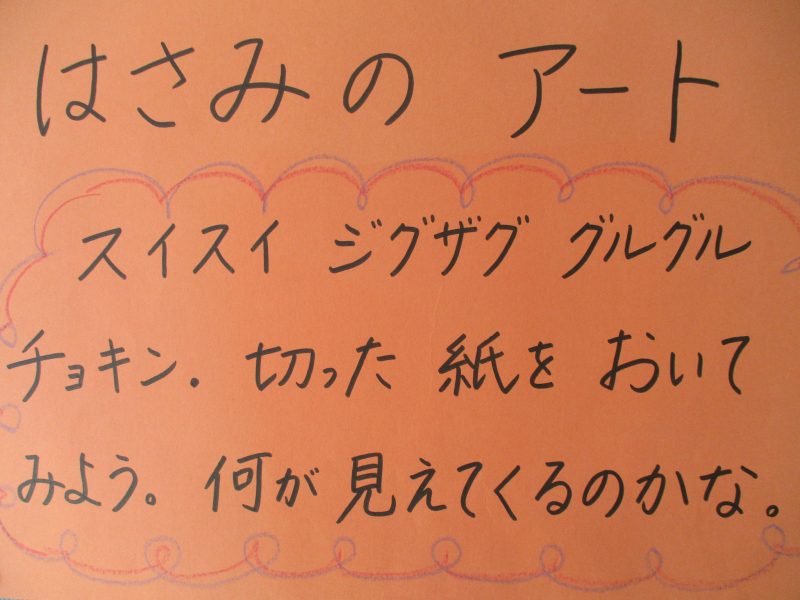 はさみの アート
スイスイ ジグザグ グルグル
チョキン. 切った 紙を おいて
みよう。何が見えてくるのかな。